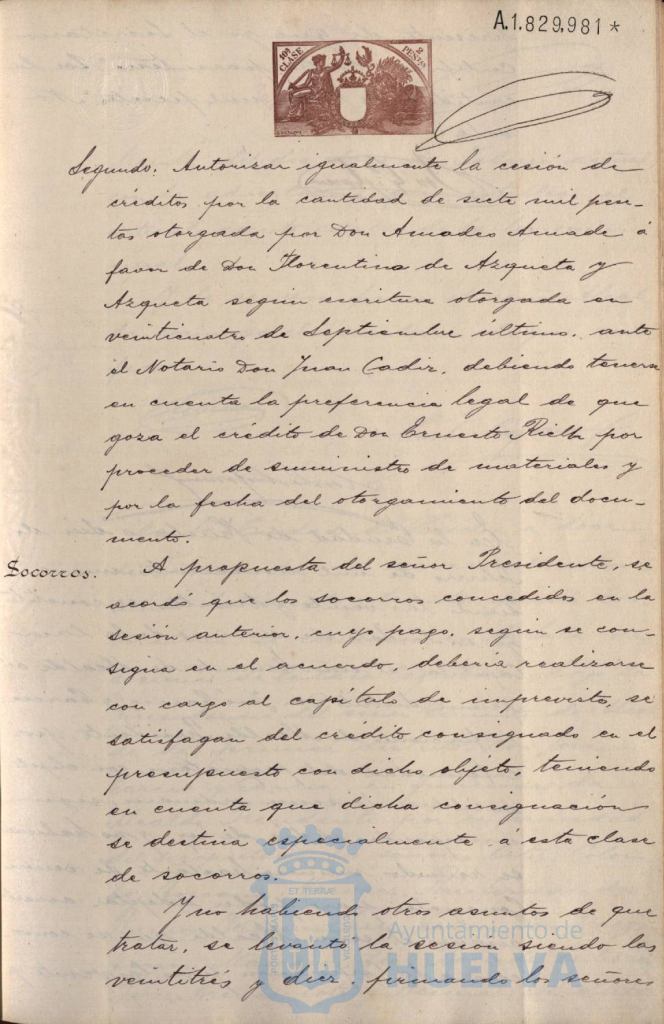 A.1.829.981 *
10ª CLASE
2 PESETAS
Segundo. Autorizar igualmente la cesión de
créditos por la cantidad de siete mil pese-
tas otorgada por Don Amadeo Amade á
favor de Don Florentina de Azqueta y
Azqueta según escritura otorgada en
veinticuatro de Septiembre último, ante
el Notario Don Juan Cadiz, debiendo tenerse
en cuenta la preferencia legal de que
goza el crédito de Don Ernesto Rieth por
proceder de suministro de materiales y
por la fecha del otorgamiento del docu-
mento.
Socorros.
A propuesta del señor Presidente, se
acordó que los socorros concedidos en la
sesión anterior, cuyo pago, según se con-
signa en el acuerdo, debería realizarse
con cargo al capítulo de imprevisto, se
satisfagan del crédito consignado en el
presupuesto con dicho objeto, teniendo
en cuenta que dicha consignación
se destina especialmente á esta clase
de socorros.
Y no habiendo otros asuntos de que
tratar, se levantó la sesión siendo las
veintitrés y diez, firmando los señores
Ayuntamiento de
HUELVA